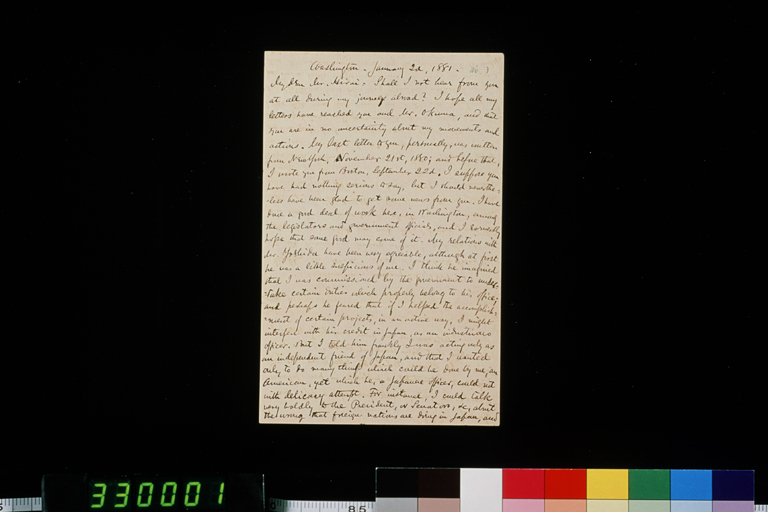 Washington. January 2d, 1881.
My dear Mr. Hirai: Shall I not hear from you
at all during my journey abroad? I hope all my
letters have reached you and Mr. Okuma, and that
you are in no uncertainty about my movements and
actions. My last letter to you, personally, was written
from Norfolk, November 21st, 1880; and before that,
I wrote you from Boston, September 22d. I suppose you
have had nothing serious to say, but I should neverthe-
-less have been glad to get some news from you. I have
done a good deal of work here, in Washington, among
the legislators and government officials, and I earnestly
hope that some good may come of it. My relations with
Mr. Yoshida have been very agreeable, although at first
he was a little suspicious of me. I think he imagined
that I was commissioned by the government to under-
-take certain duties which properly belong to his office;
and perhaps he feared that if I helped the accomplish-
-ment of certain projects, in an active way, I might
interfere with his credit in Japan, as an industrious
officer. But I told him frankly I was acting only as
an independent friend of Japan, and that I wanted
only to do many things which could be done by me, an
American, yet which he, a Japanese officer, could not
with delicacy attempt. For instance, I could talk
very boldly to the President, or Senators, &c, about
the wrong that foreign nations are doing in Japan, and
330001
85